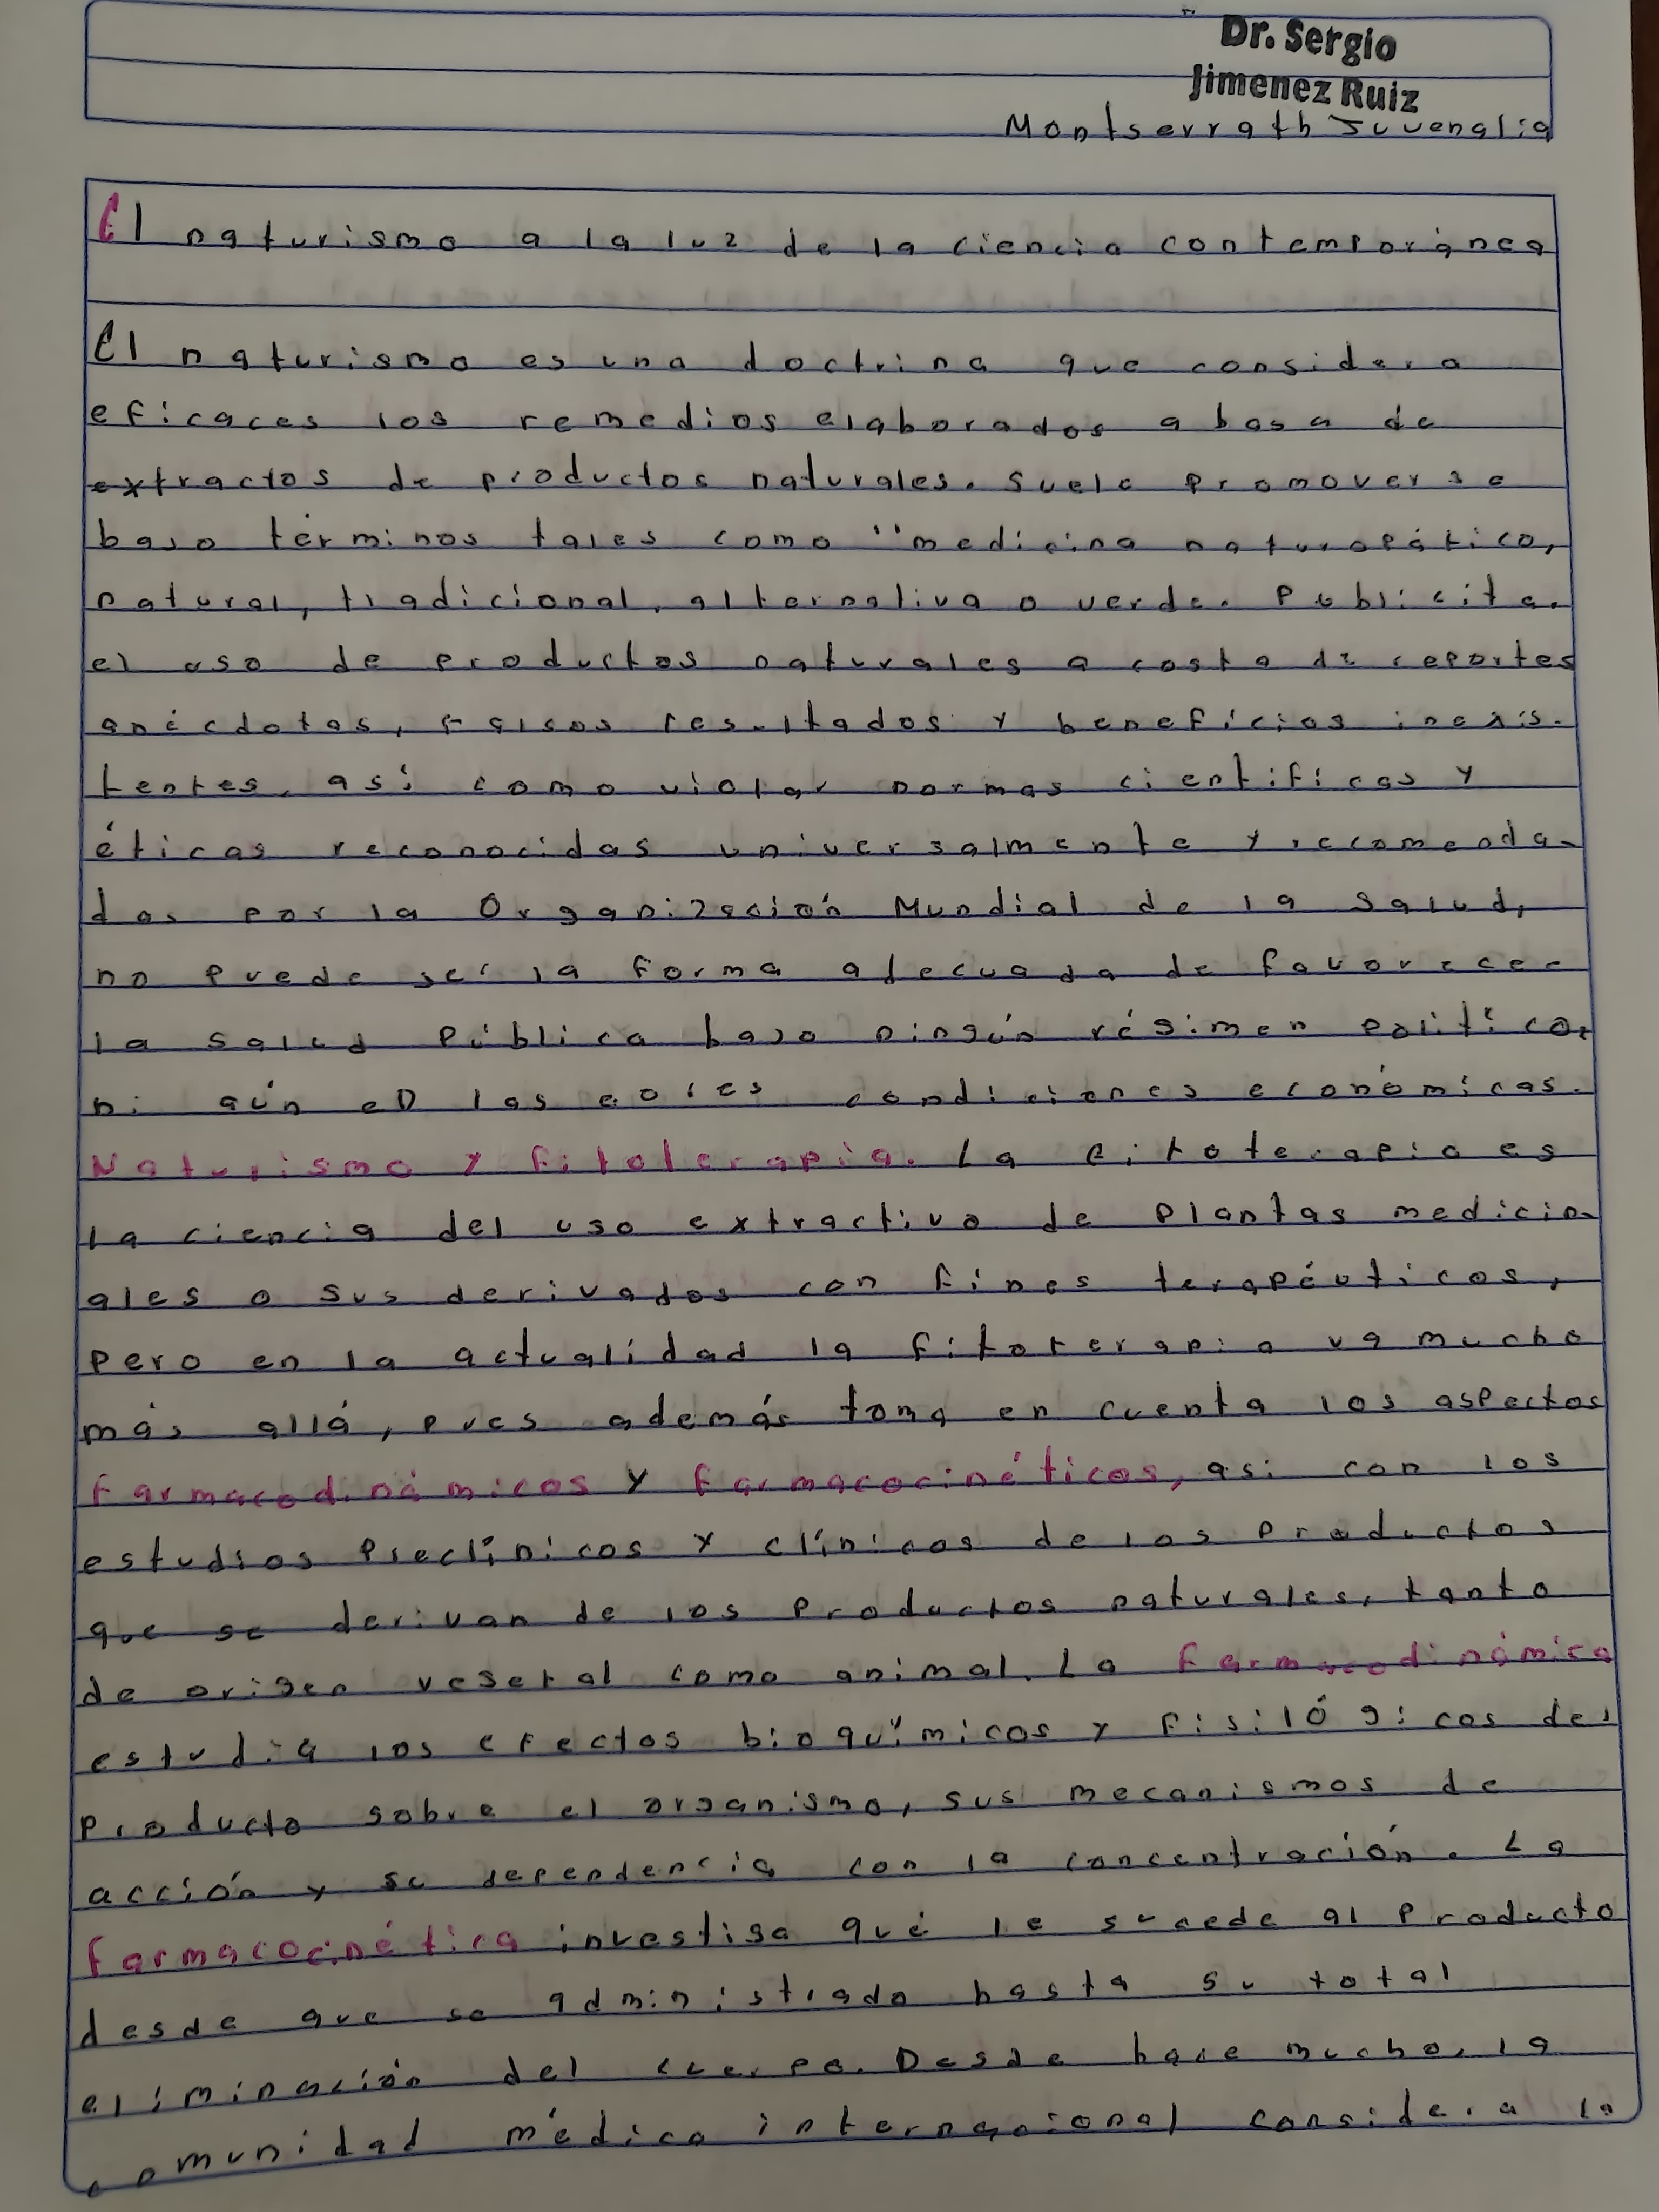 Dr. Sergio
Jimenez Ruiz
Montserrath Juvenalia
El naturismo a la luz de la ciencia contemporánea
El naturismo es una doctrina que considera
eficaces los remedios elaborados a basa de
extractos de productos naturales. Suele promoverse
bajo términos tales como "medicina naturopático,
natural, tradicional, alternativa o verde. Publicita.
el uso de productos naturales a costa de reportes
anécdotas, falsos resultados y beneficios inexis-
tentes, así como violar normas científicas y
éticas reconocidas universalmente y recomenda-
das por la Organización Mundial de la Salud,
no puede ser la forma adecuada de favorecer
la salud pública bajo ningún régimen político,
ni aún en las peores condiciones económicas.
Naturismo y fitoterapia. La fitoterapia es
la ciencia del uso extractivo de plantas medicin-
ales o sus derivados con fines terapéuticos,
pero en la actualidad la fitoterapia va mucho
más allá, pues además toma en cuenta los aspectos
farmacodinámicos y farmacocinéticos, asi con los
estudios preclínicos y clínicos de los productos
que se derivan de los productos naturales, tanto
de origen vegetal como animal. La farmacodinámica
estudia los efectos bioquímicos y fisilógicos del
producto sobre el organismo, sus mecanismos de
acción y su dependencia con la concentración. La
farmacocinética investiga qué le sucede al producto
desde que se administrado hasta su total
eliminación del cuerpo. Desde hace mucho, la
comunidad médica internacional considera la